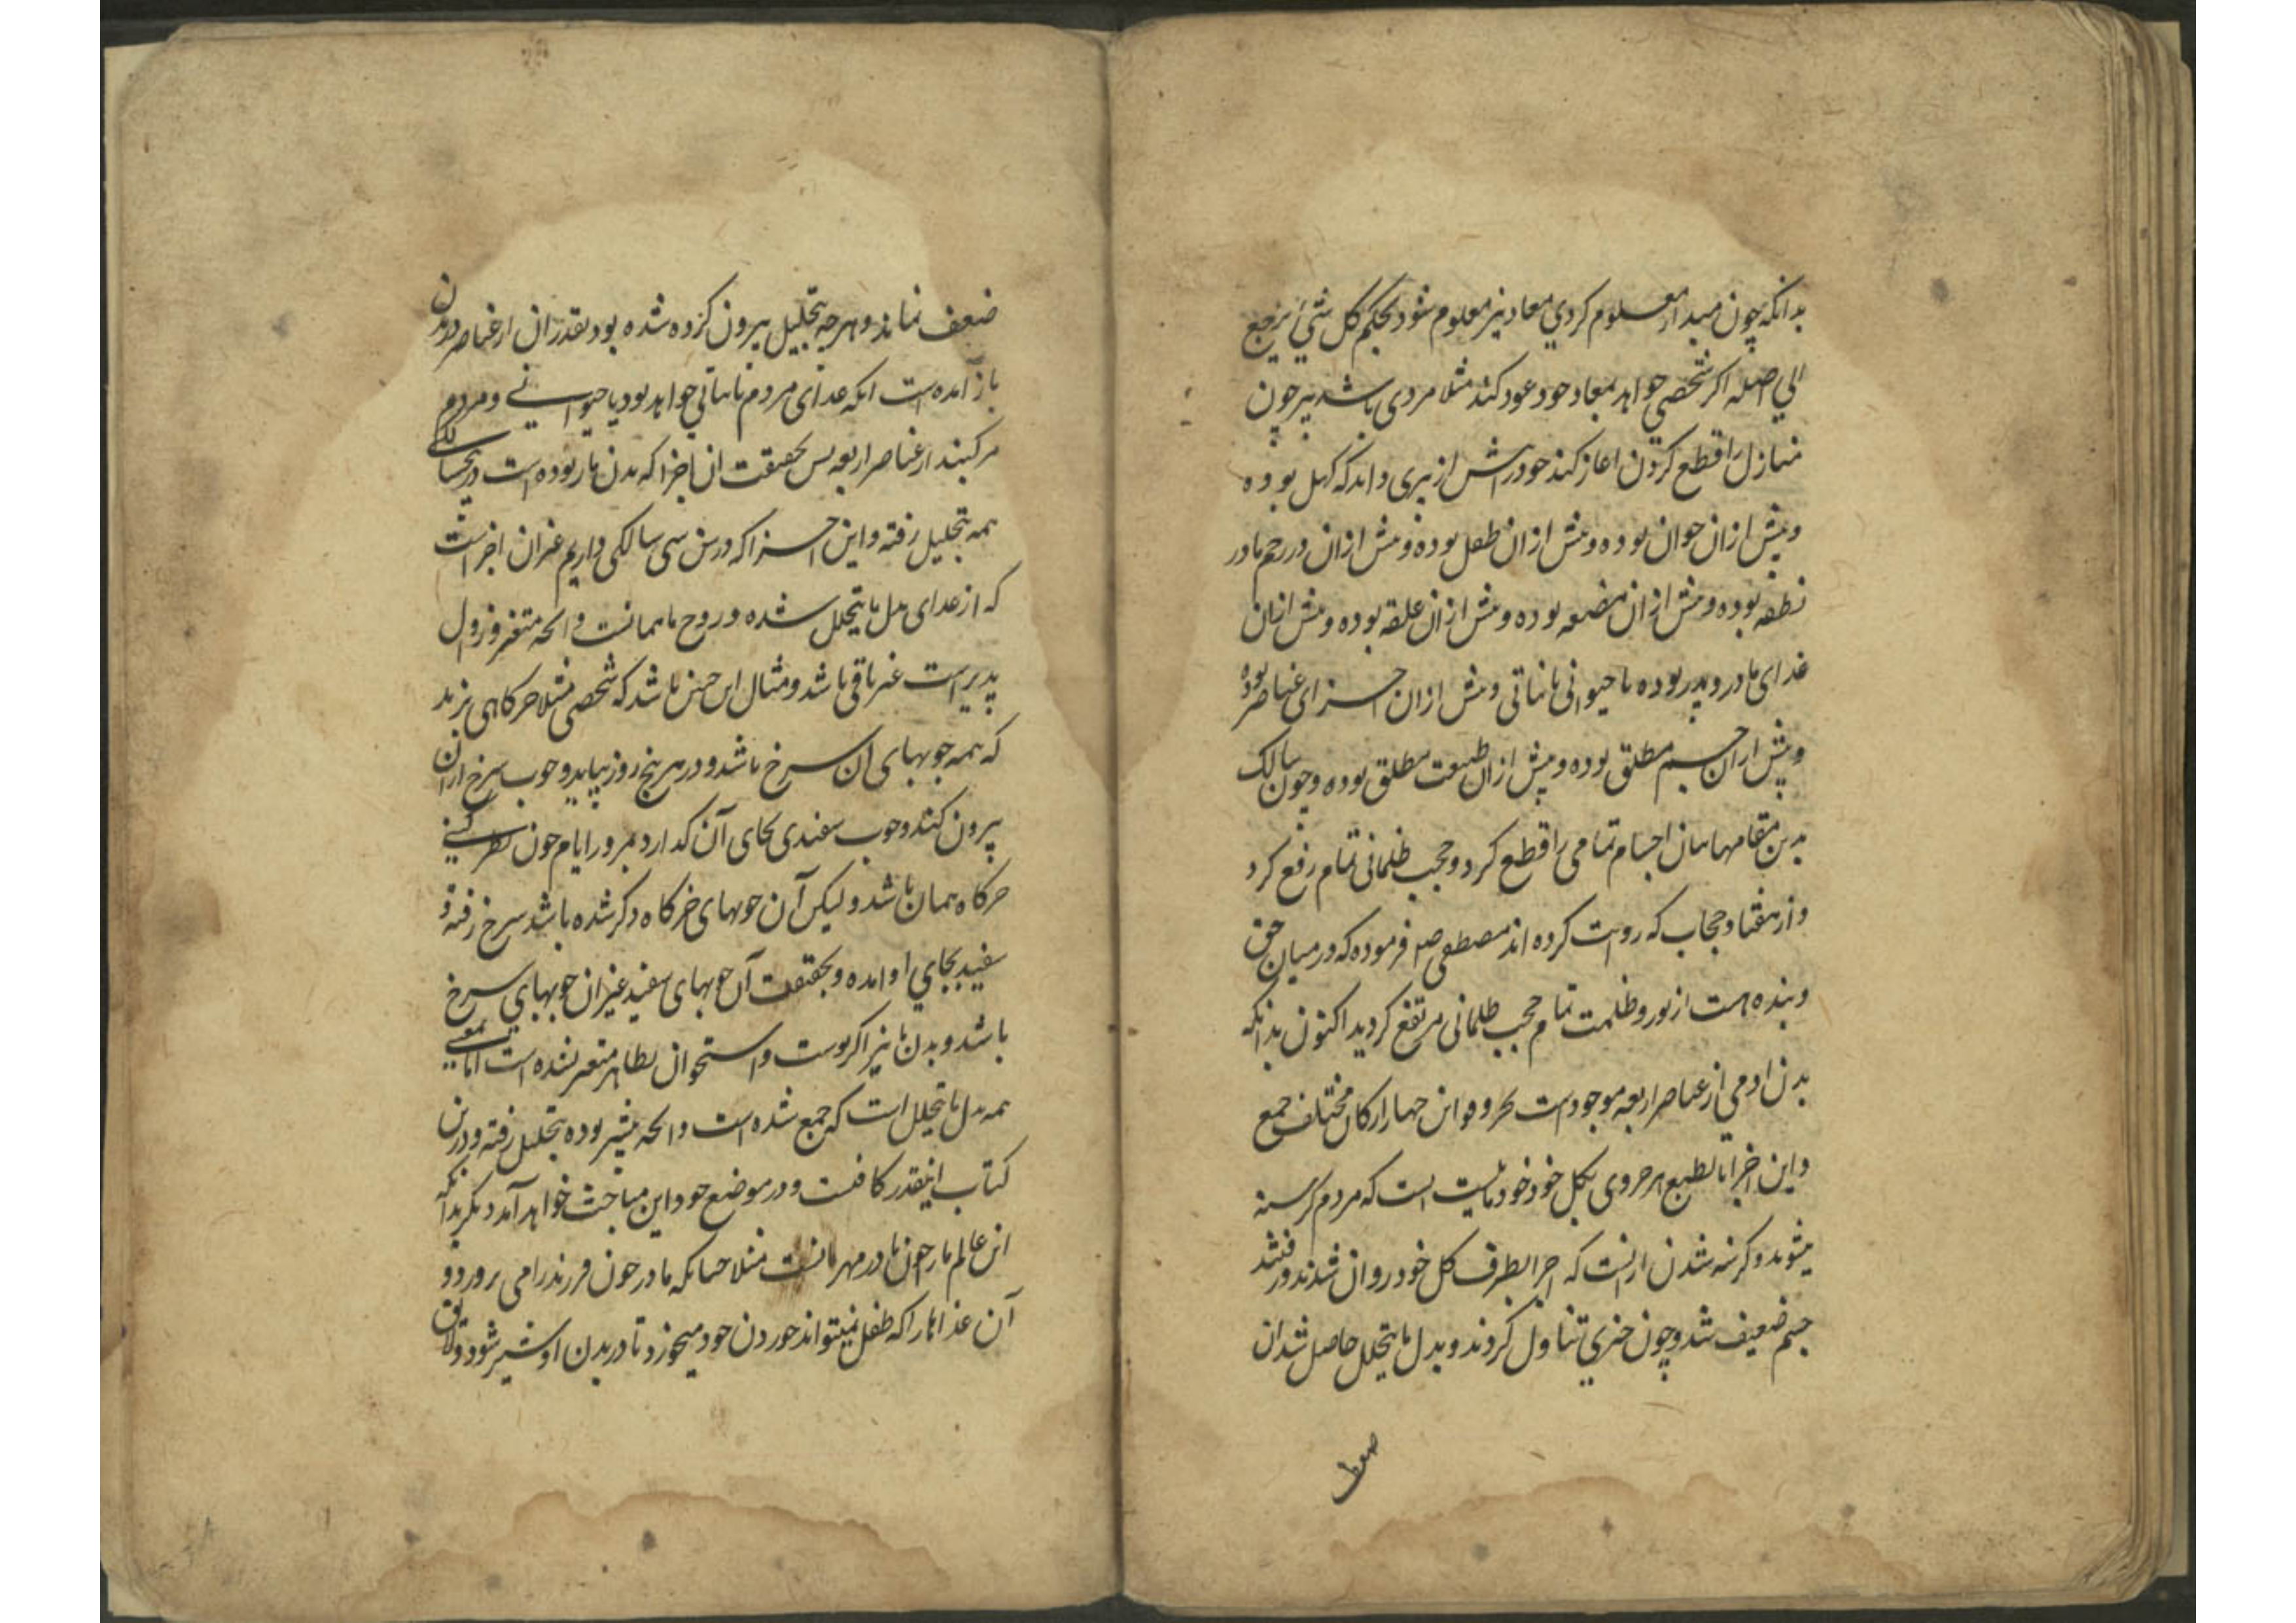 بدانکه چون مبدا معلوم کردی معاد نیز معلوم شود بحکم کل شیٔ یرجع
الی اصله اکر شخصی خواهد بمعاد خود عود کند مثلا مردی باشد پیر چون
منازل را قطع کردن اغاز کند خود را پیش از پیری داند که کهل بوده
و پیش ازان جوان بوده و پیش ازان طفل بوده و پیش ازان در رحم مادر
نطفه بوده و پیش ازان مضغه بوده و پیش ازان علقه بوده و پیش ازان
غذای مادر و پدر بوده یا حیوانی یا نباتی و پیش ازان اجزای عناصر بوده
و پیش ازان جسم مطلق بوده و پیش ازان طبیعت مطلق بوده و چون سالک
بدین مقامها اجسام تمامی را قطع کرد و حجب ظلمانی تمام رفع کرد
و از هفتاد حجاب که روایت کرده اند مصطفی صم فرموده که در میان حق
و بنده است از نور و ظلمت تمام حجب ظلمانی مرتفع کردید اکنون بدانکه
بدن ادمی از عناصر اربعه موجودست این چهار ارکان مختلف جمع
و این اجزا بالطبع هر جزوی بکل خود مایلست است که مردم کرسنه
میشوند و کرسنه شدن ازانست که اجزا بطرف کل خود روان شدند و رفتند
جسم ضعیف شد و چون چیزی تناول کردند و بدل ما یتحلل حاصل شد ان
ضعف
ضعف نماند و هرچه بتحلیل بیرون کرده شده بود بقدر ان از عناصر در بدن
باز آمده است انکه غذای مردم یا نباتی خواهد بود یا حیوانی و مردم
مرکبند از عناصر اربعه پس بحقیقت ان اجزا که بدن ما بوده است در سالکی
همه بتحلیل رفته و این اجزا که در سن سی سالکی داریم غیر ان اجزاست
که از غذای بدل ما یتحلل شده و روح ما همانست و انچه متغیر و زوال
پذیر است غیر باقی باشد و مثال این چنین باشد که شخصی مثلا خرکاهی بزند
که همه چوبهای ان سرخ باشد و در هر پنج روز بیاید و چوب سرخ ازان
بیرون کند و چوب سفیدی بجای آن گذارد بمرور ایام چون نظر کنی
خرکاه همان باشد و لیکن آن چوبهای خرکاه دکر شده باشد سرخ رفته و
سفید بجای او امده و بحقیقت آن چوبهای سفید غیر ان چوبهای سرخ
باشد و بدن ما نیز اکر پوست و استخوان بظاهر متغیر نشده است اما بمعنی
همه بدل ما یتحلل است که جمع شده است و انچه پیشتر بوده بتحلیل رفته و درین
کتاب اینقدر کافیست و در موضع خود این مباحث خواهد آمد دیکر بدانکه
این عالم ما را چون مادر مهربانست مثلا چنانکه مادر چون فرزند را می پرورد و
آن غذاها را که طفل نمیتواند خوردن خود میخورد تا در بدن او شیر شود و لایق